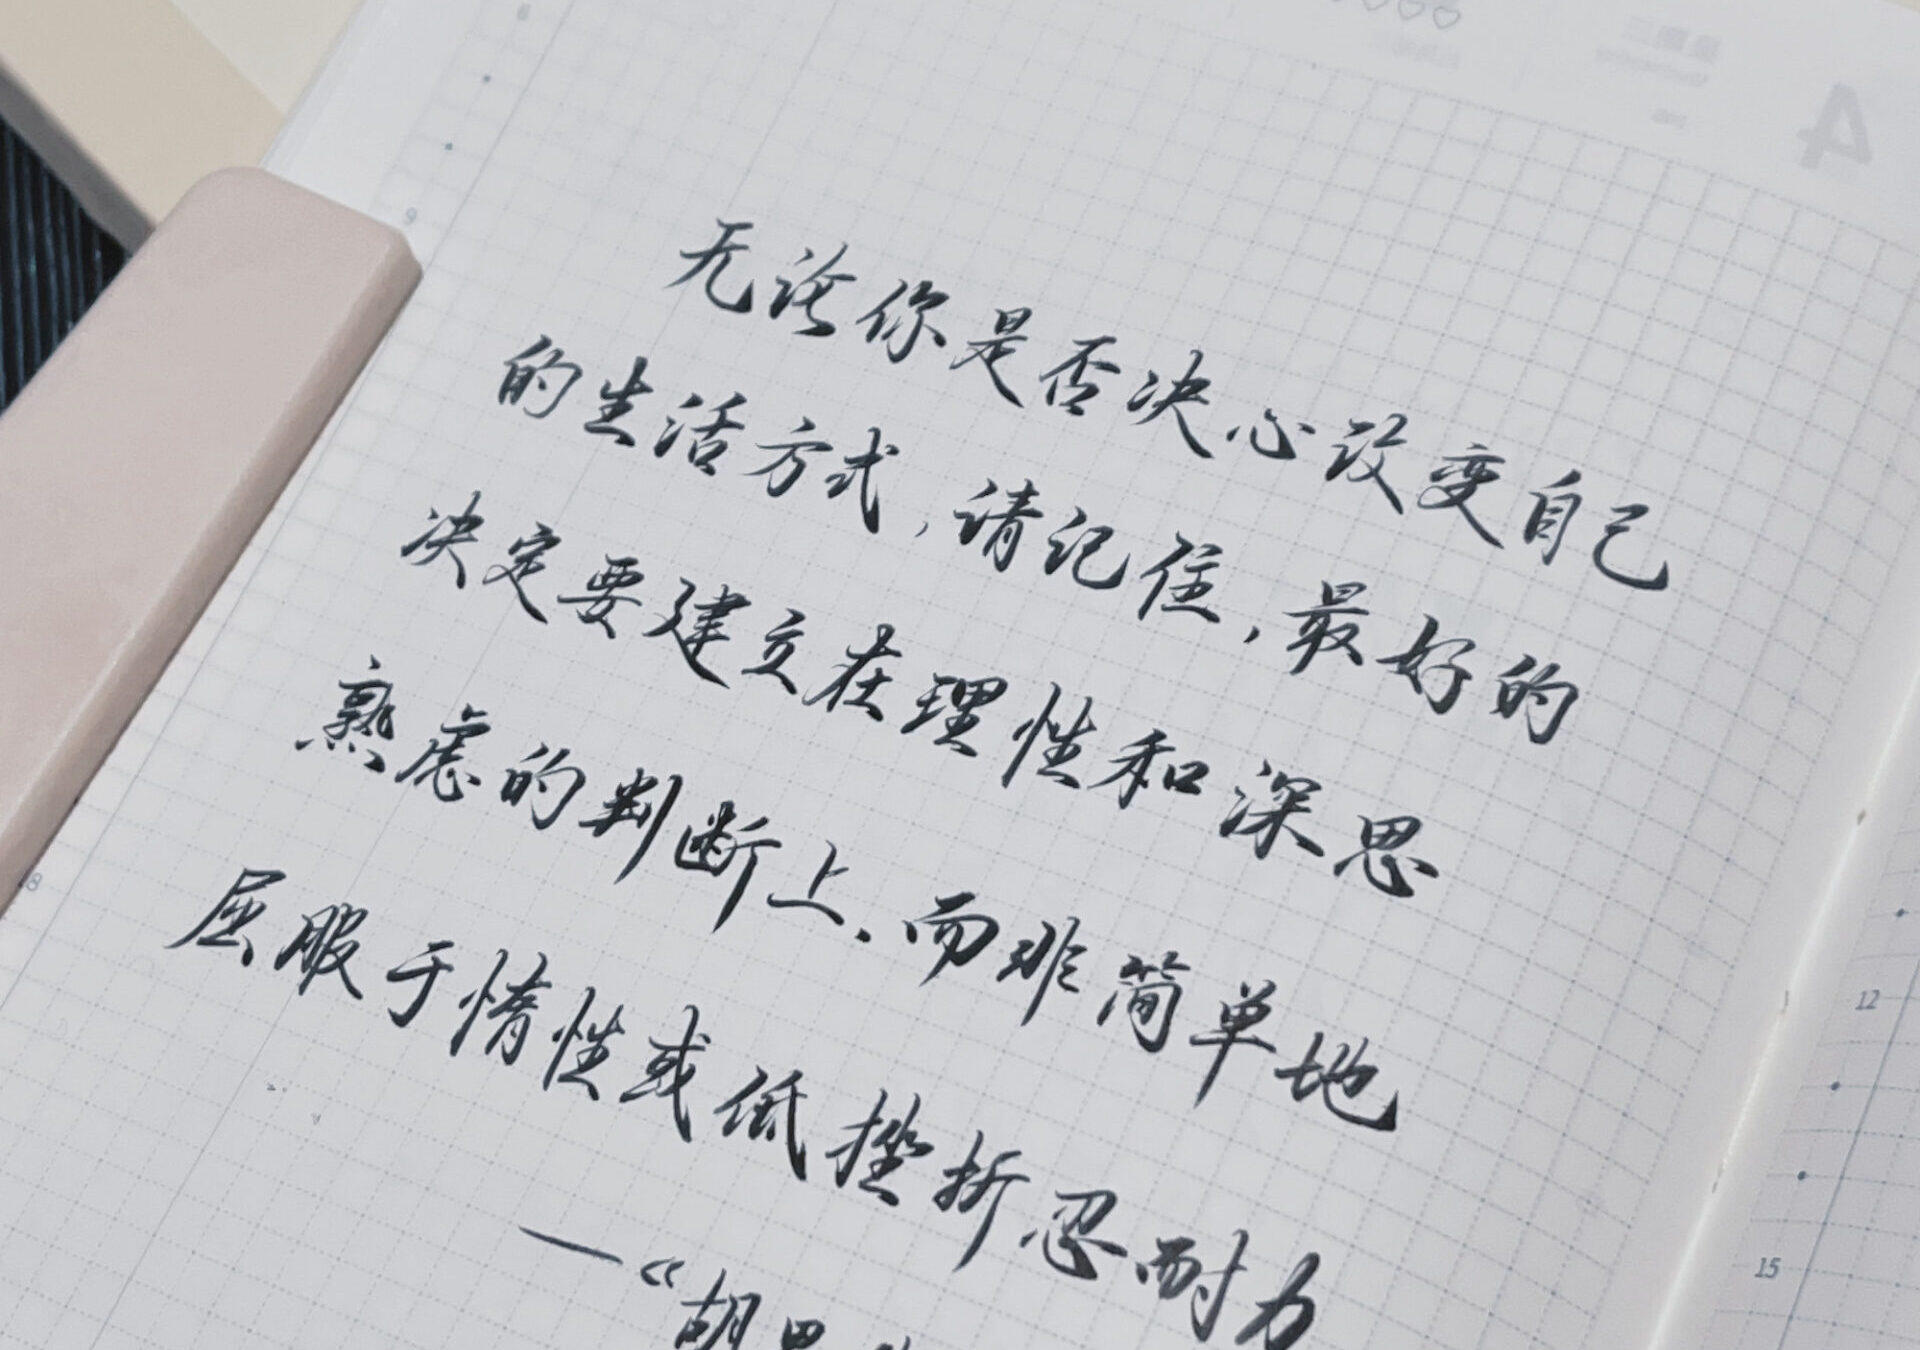 无论你是否决心改变自己
的生活方式，请记住，最好的
决定要建立在理性和深思
熟虑的判断上，而非简单地
屈服于惰性或低挫折忍耐力
—《胡思
4
8
9
18
12
15